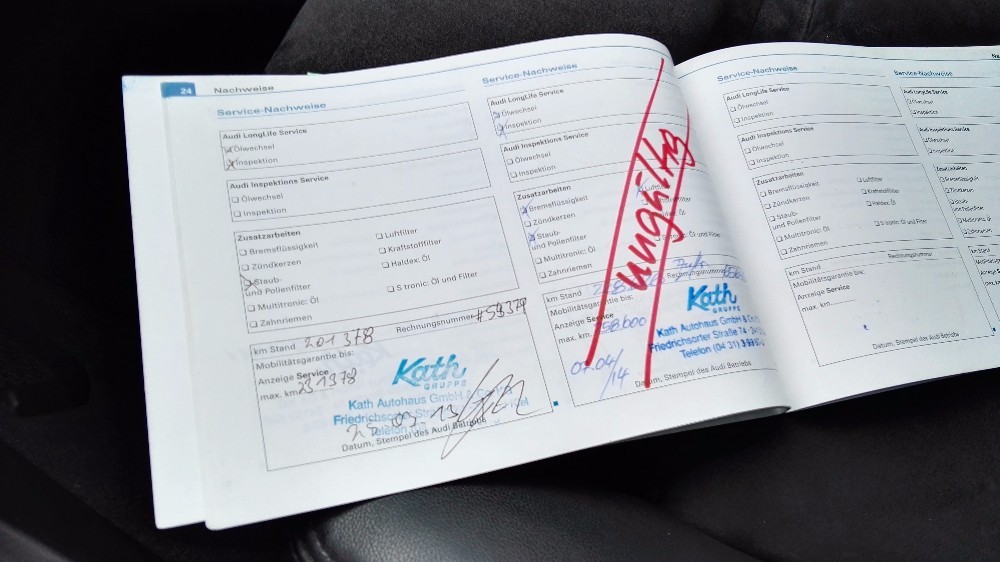 24 Nachweise
Service-Nachweise
Audi LongLife Service
Ölwechsel
Inspektion
Audi Inspektions Service
Ölwechsel
Inspektion
Zusatzarbeiten
Bremsflüssigkeit
Zündkerzen
Staub-
und Pollenfilter
Multitronic: Öl
Zahnriemen
Luftfilter
Kraftstoffilter
Haldex: Öl
S tronic: Öl und Filter
km Stand 201378
Rechnungsnummer #59379
Mobilitätsgarantie bis:
Anzeige Service
max. km 231378
Kath
GRUPPE
Kath Autohaus GmbH &
Datum, Stempel des Audi Betriebs
Service-Nachweise
Audi LongLife Service
Ölwechsel
Inspektion
Audi Inspektions Service
Ölwechsel
Inspektion
Zusatzarbeiten
Bremsflüssigkeit
Zündkerzen
Staub-
und Pollenfilter
Multitronic: Öl
Zahnriemen
ungültig
km Stand
Rechnungsnummer
Mobilitätsgarantie bis:
Anzeige Service
max. km 258.000
07.04/14
Kath
GRUPPE
Kath Autohaus GmbH &
Friedrichsorter Straße 74
Telefon (04 31)
Datum, Stempel des Audi Betriebs
Service-Nachweise
Audi LongLife Service
Ölwechsel
Inspektion
Audi Inspektions Service
Ölwechsel
Inspektion
Zusatzarbeiten
Bremsflüssigkeit
Zündkerzen
Staub-
und Pollenfilter
Multitronic: Öl
Zahnriemen
Luftfilter
Kraftstoffilter
Haldex: Öl
S tronic: Öl und Filter
km Stand
Rechnungsnummer
Mobilitätsgarantie bis:
Anzeige Service
max. km
Datum, Stempel des Audi Betriebs
Service-Nachweise
Audi LongLife Service
Ölwechsel
Inspektion
Audi Inspektions Service
Ölwechsel
Inspektion
Zusatzarbeiten
Bremsflüssigkeit
Zündkerzen
Staub-
und Pollenfilter
Multitronic: Öl
Zahnriemen
km Stand